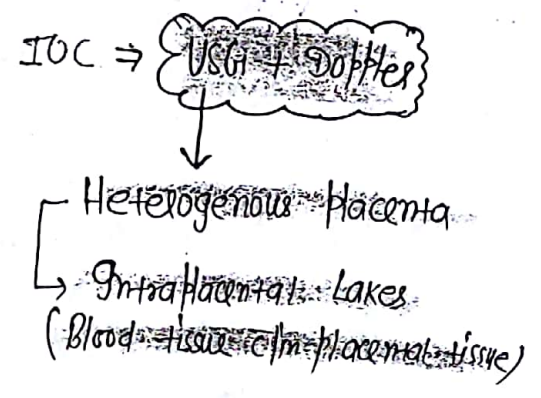 IOC ⇒ USG + Doppler
Heterogenous placenta
Intraplacental Lakes
(Blood tissue c/m placental tissue)